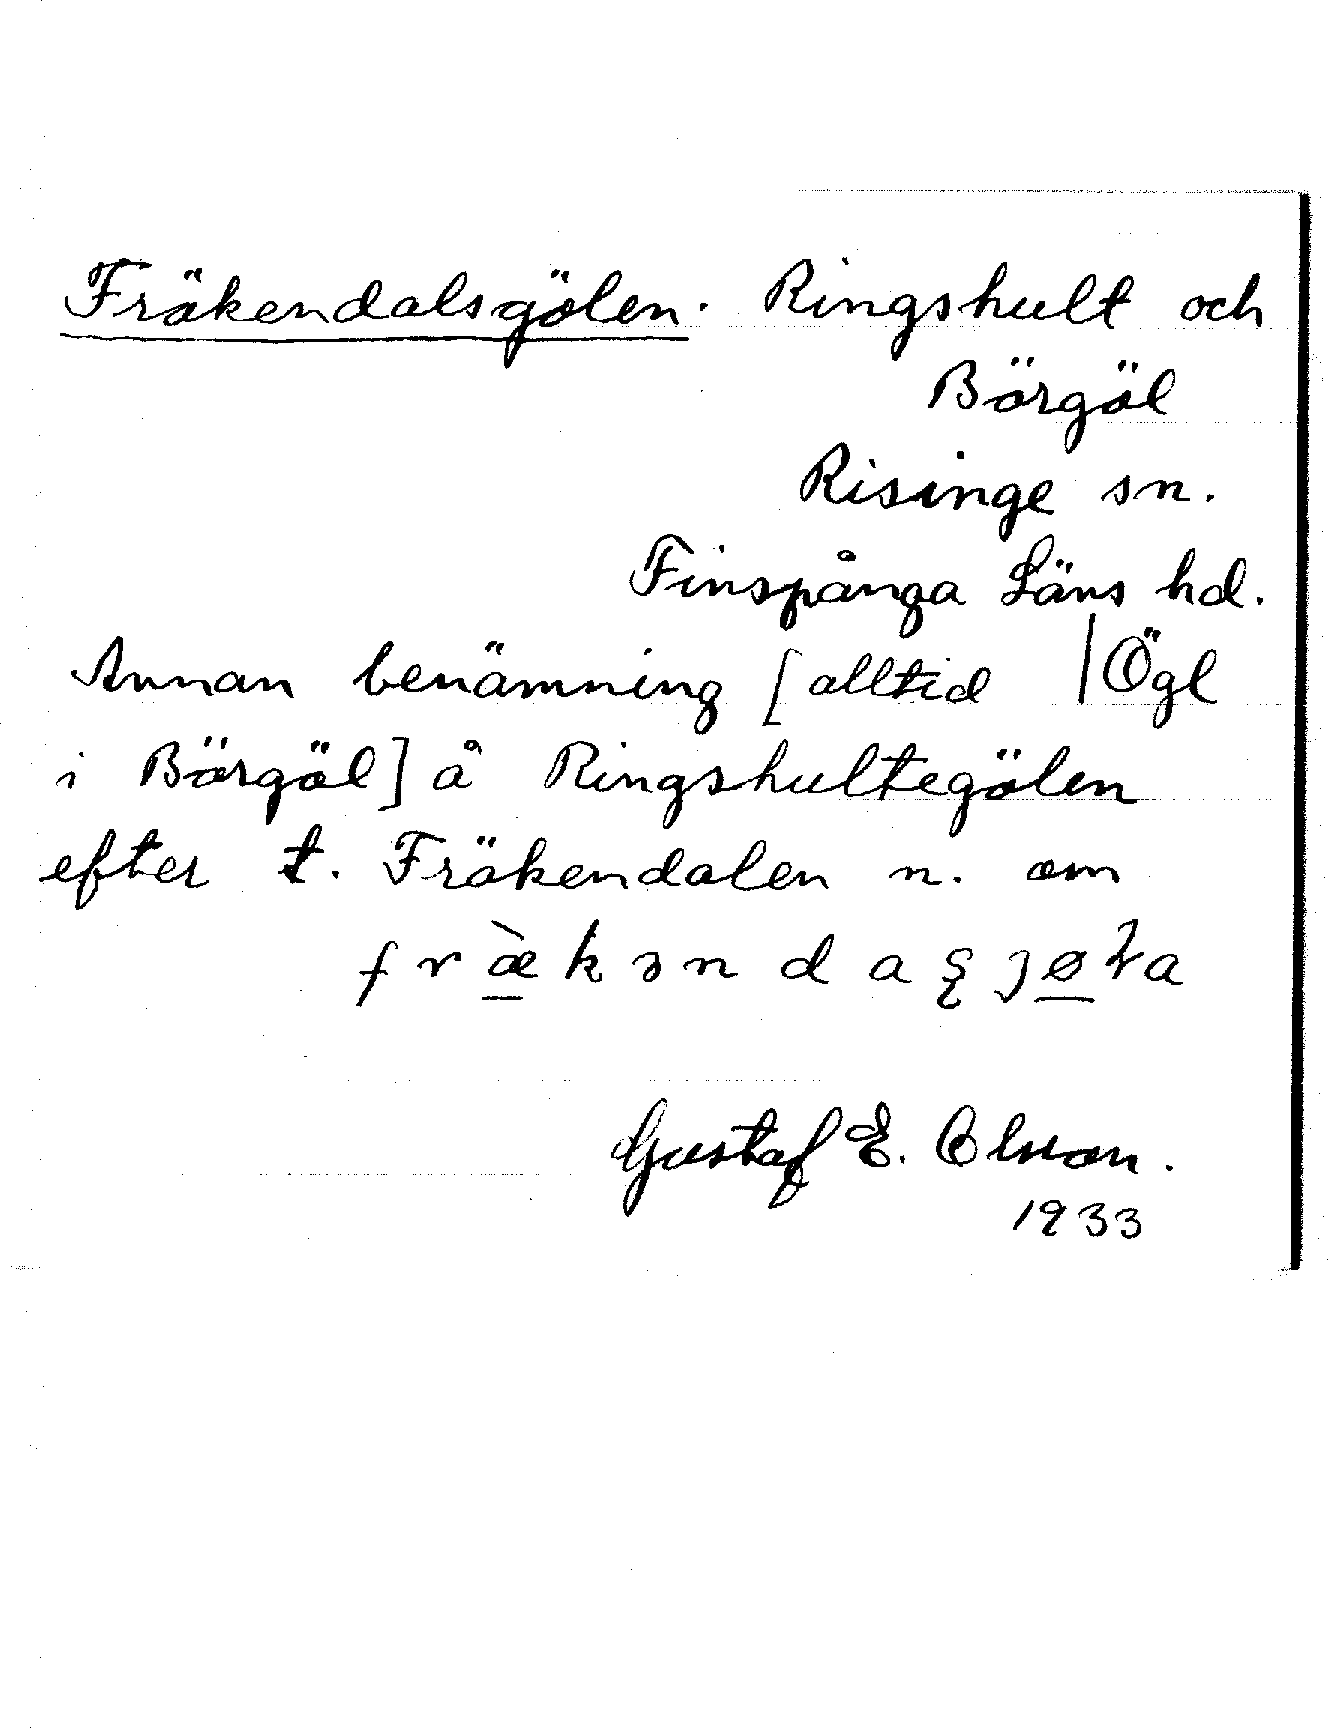 Fräkendalsgölen. Ringshult och
Börgöl
Risinge sn.
Finspånga Läns hd.
Annan benämning [alltid | Ögl
i Börgöl] å Ringshultegölen
efter t. Fräkendalen n. om
fræ̀kəndaʂjøɽa
Gustaf E. Olsson.
1933